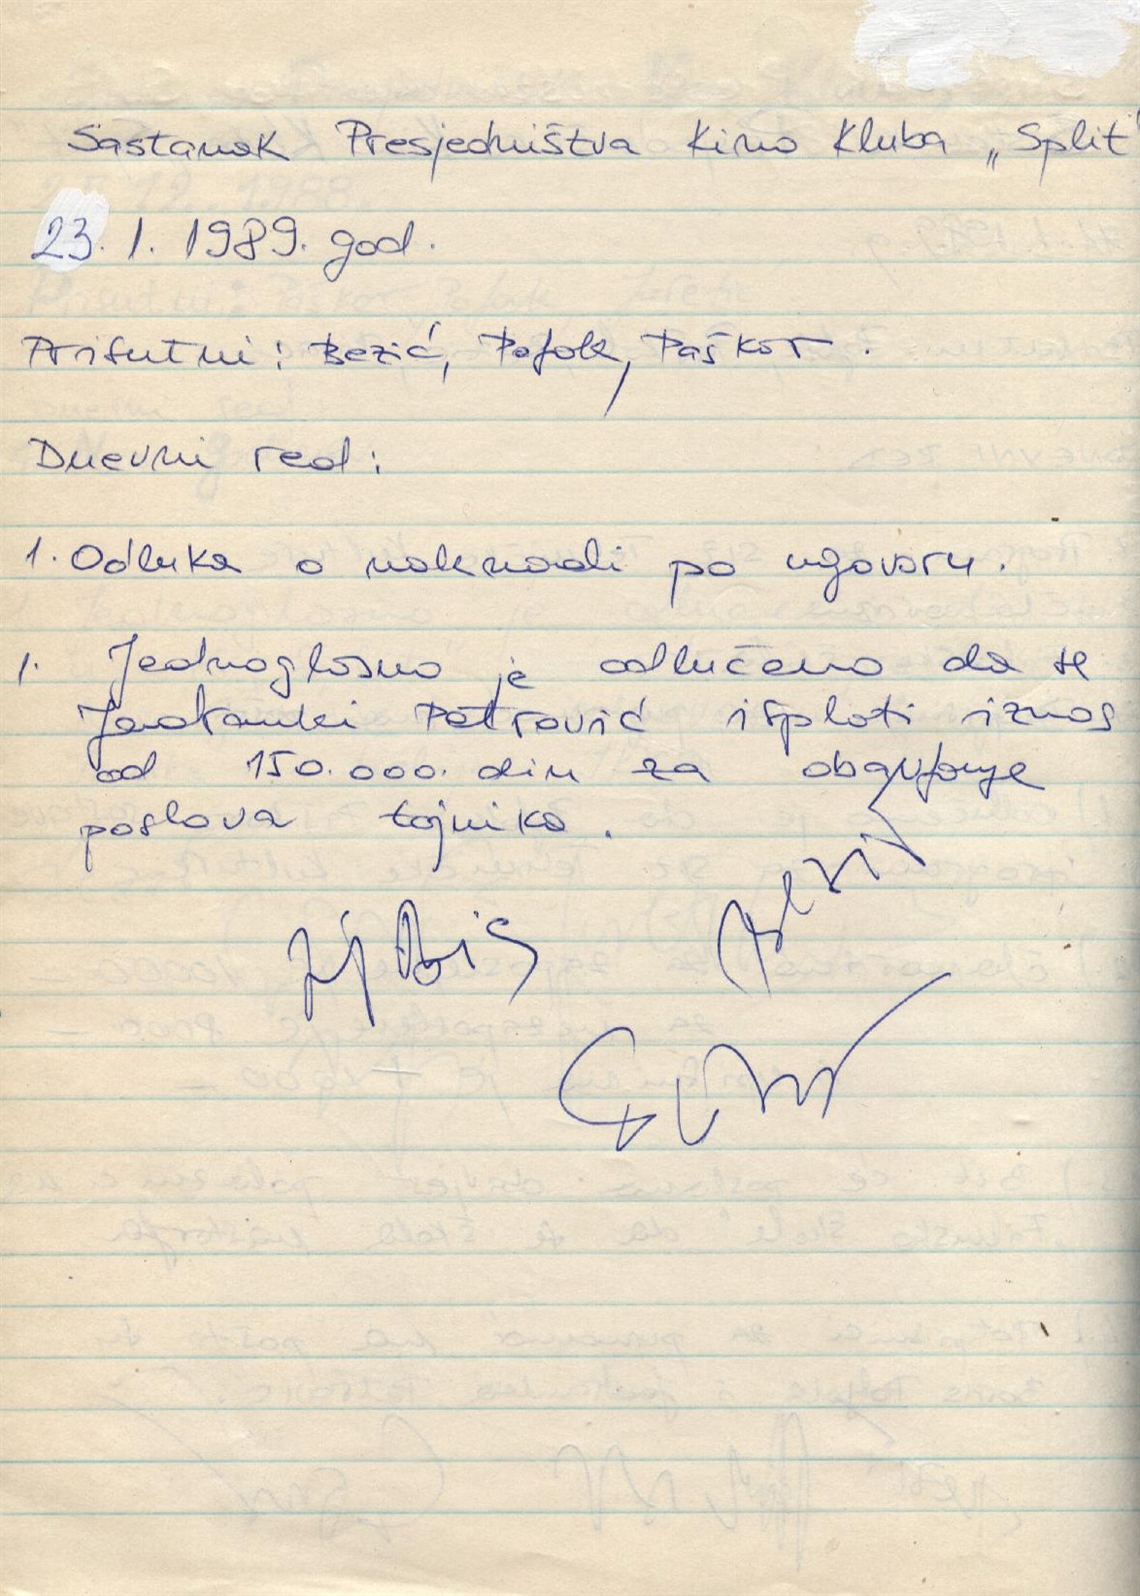 Sastanak Presjedništva Kino Kluba „Split"
23. 1. 1989. god.
Prisutni: Bezić, Pofok, Paškov.
Dnevni red:
1. Odluka o naknadi po ugovoru.
1. Jednoglasno je odlučeno da se
Jadranki Petrović isplati iznos
od 150.000. din za obavljanje
poslova tajnika.